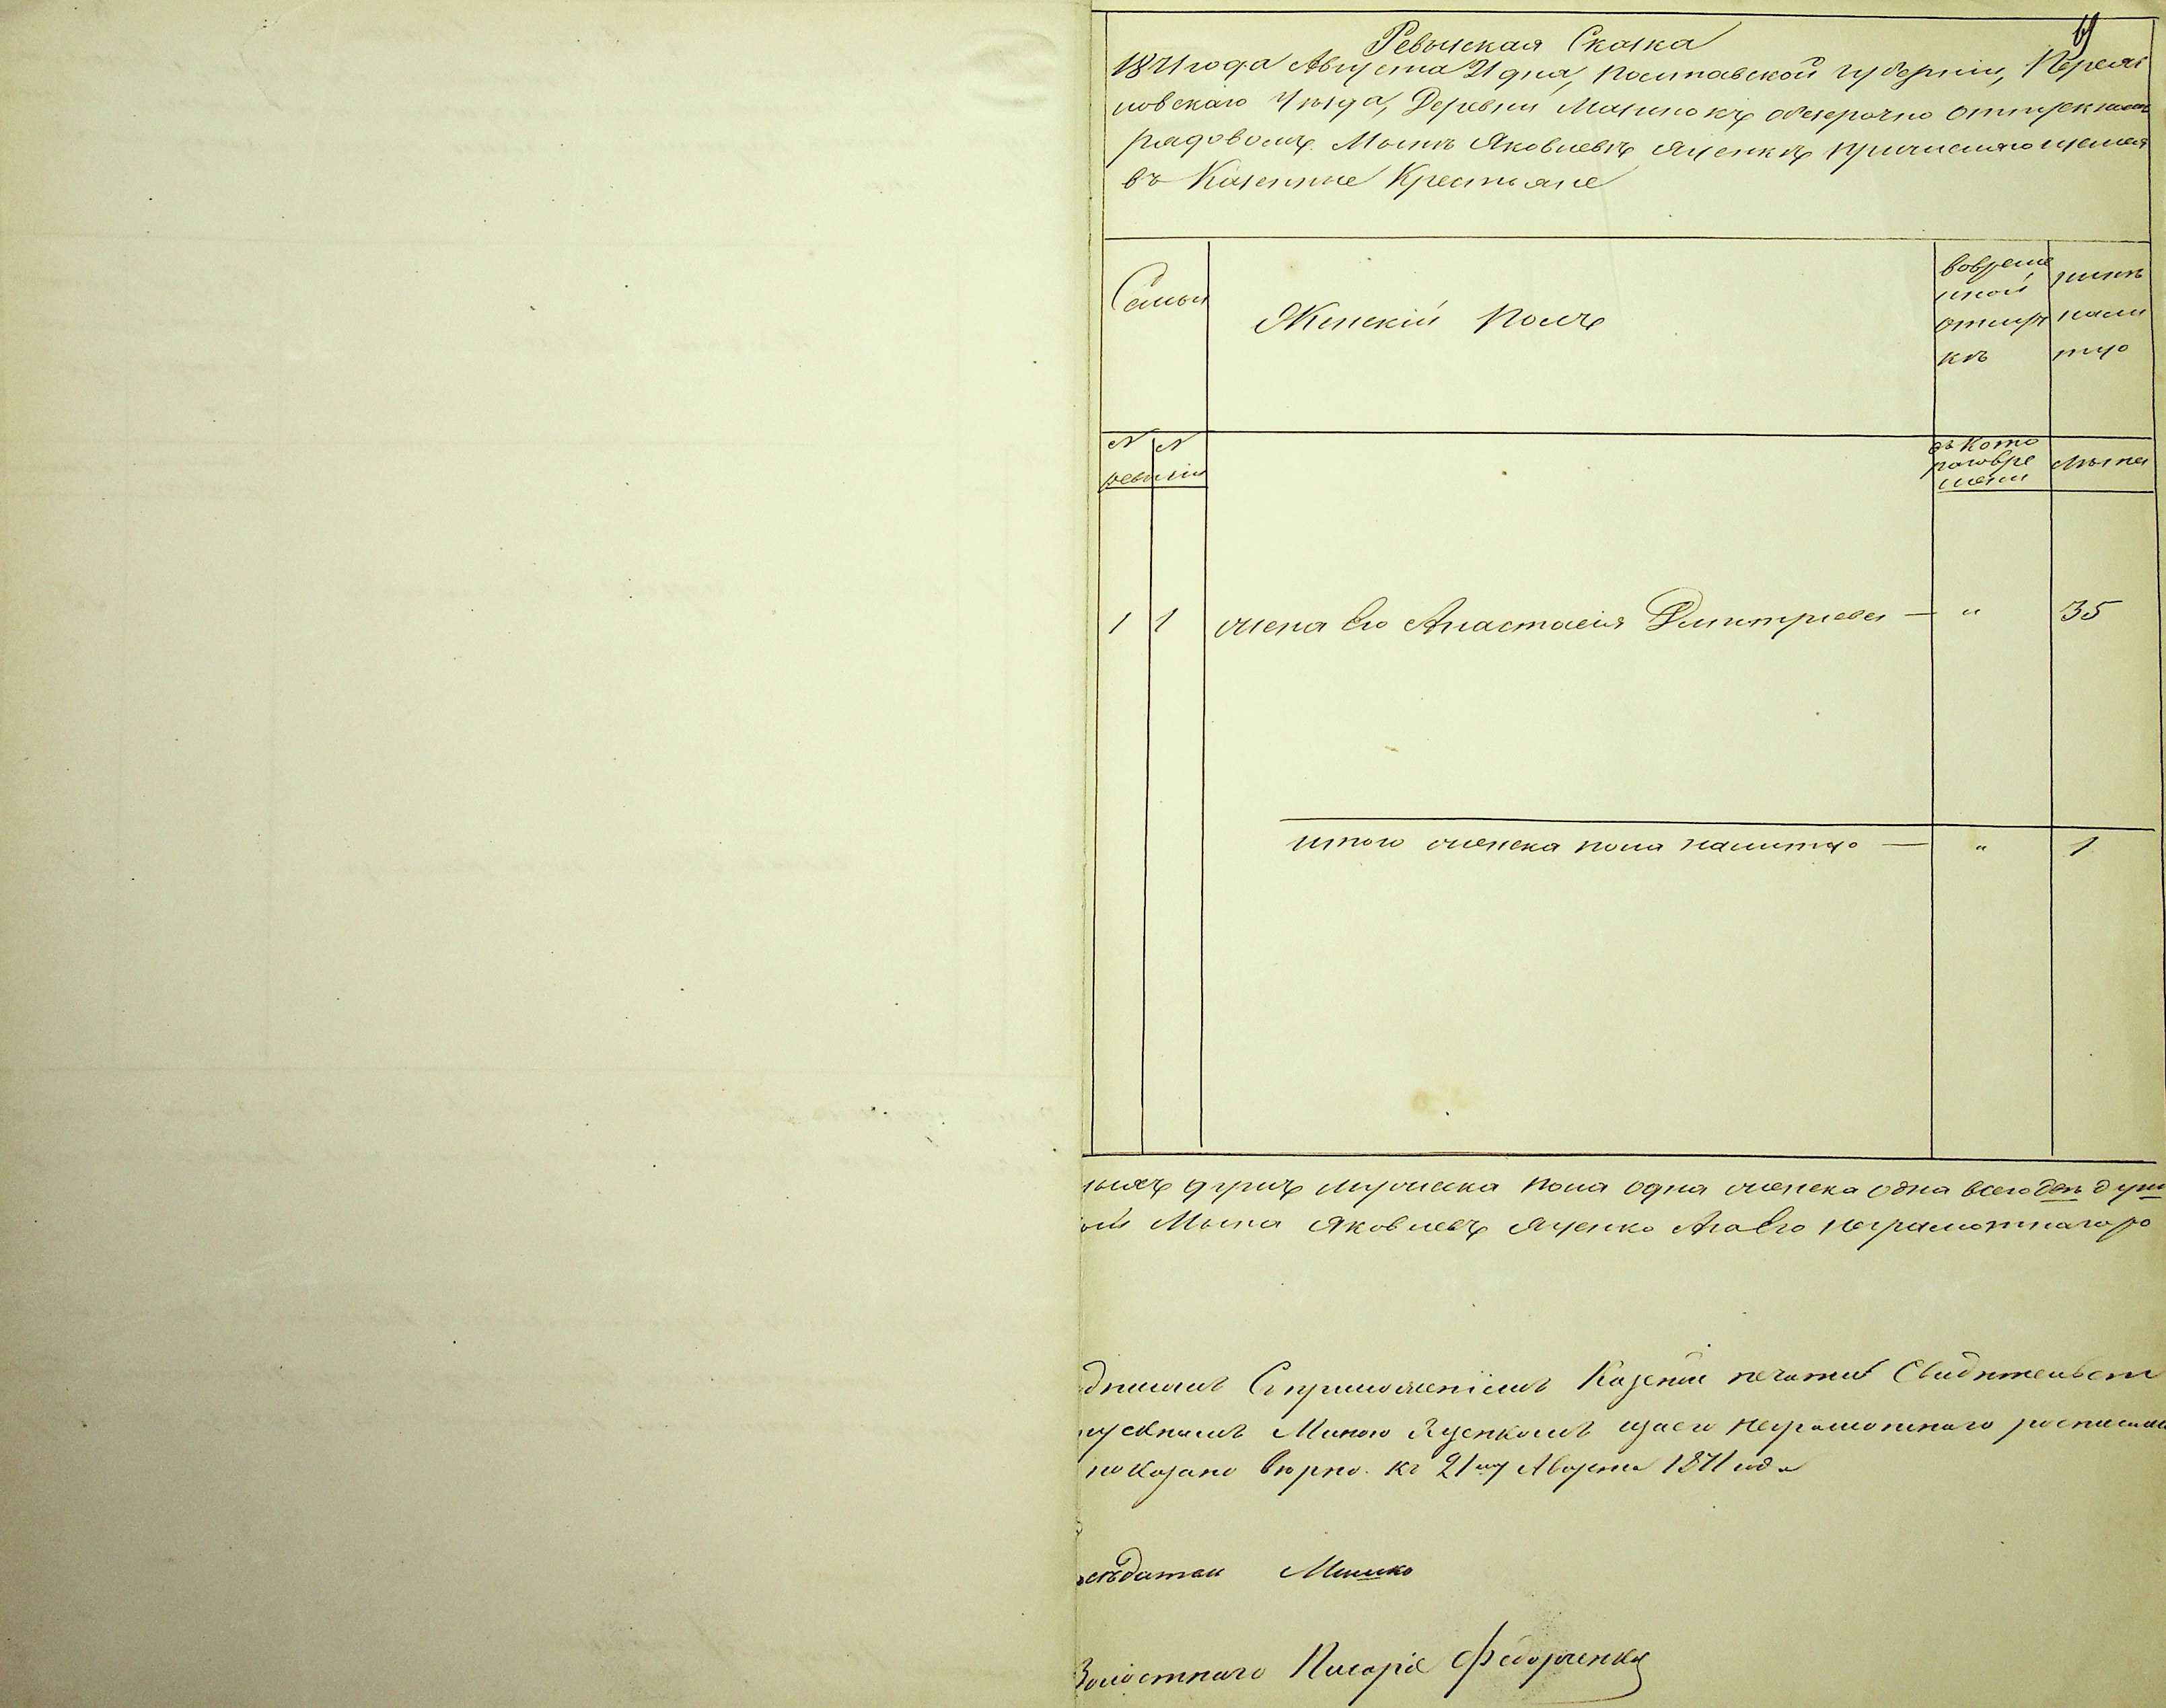 Ревизская Сказка
1871 года Августа 21 дня, Полтавской губерніи, Переяс
ловскаго Уезда, Деревни Малинокъ обсерочно отпускном
рядовомъ Мынѣ Яковлевѣ Яценкѣ причисляющемся
въ Казенные Крестьяне
Семьи
Женскій Полъ
вовреме
нной
отлуч
кѣ
нынѣ
нали
тцо
№ №
ревизіи
съ Кото
раговре
мени
Лѣта
1 1 жена Его Анастасія Дмитриева — " 35
итого женска пола налитцо — " 1
душъ мужеска пола одна женска одна всего двѣ душ
Мына Яковлевъ Яценко Аза Его неграмотнаго ро
Съ приложеніемъ Казенной печати Свидѣтельст
Миною Яценкомъ изаего неграмотнаго росписал
показано вѣрно. Къ 21му Августа 1871 года
Мишко
Волостнаго Писаря Федорченко